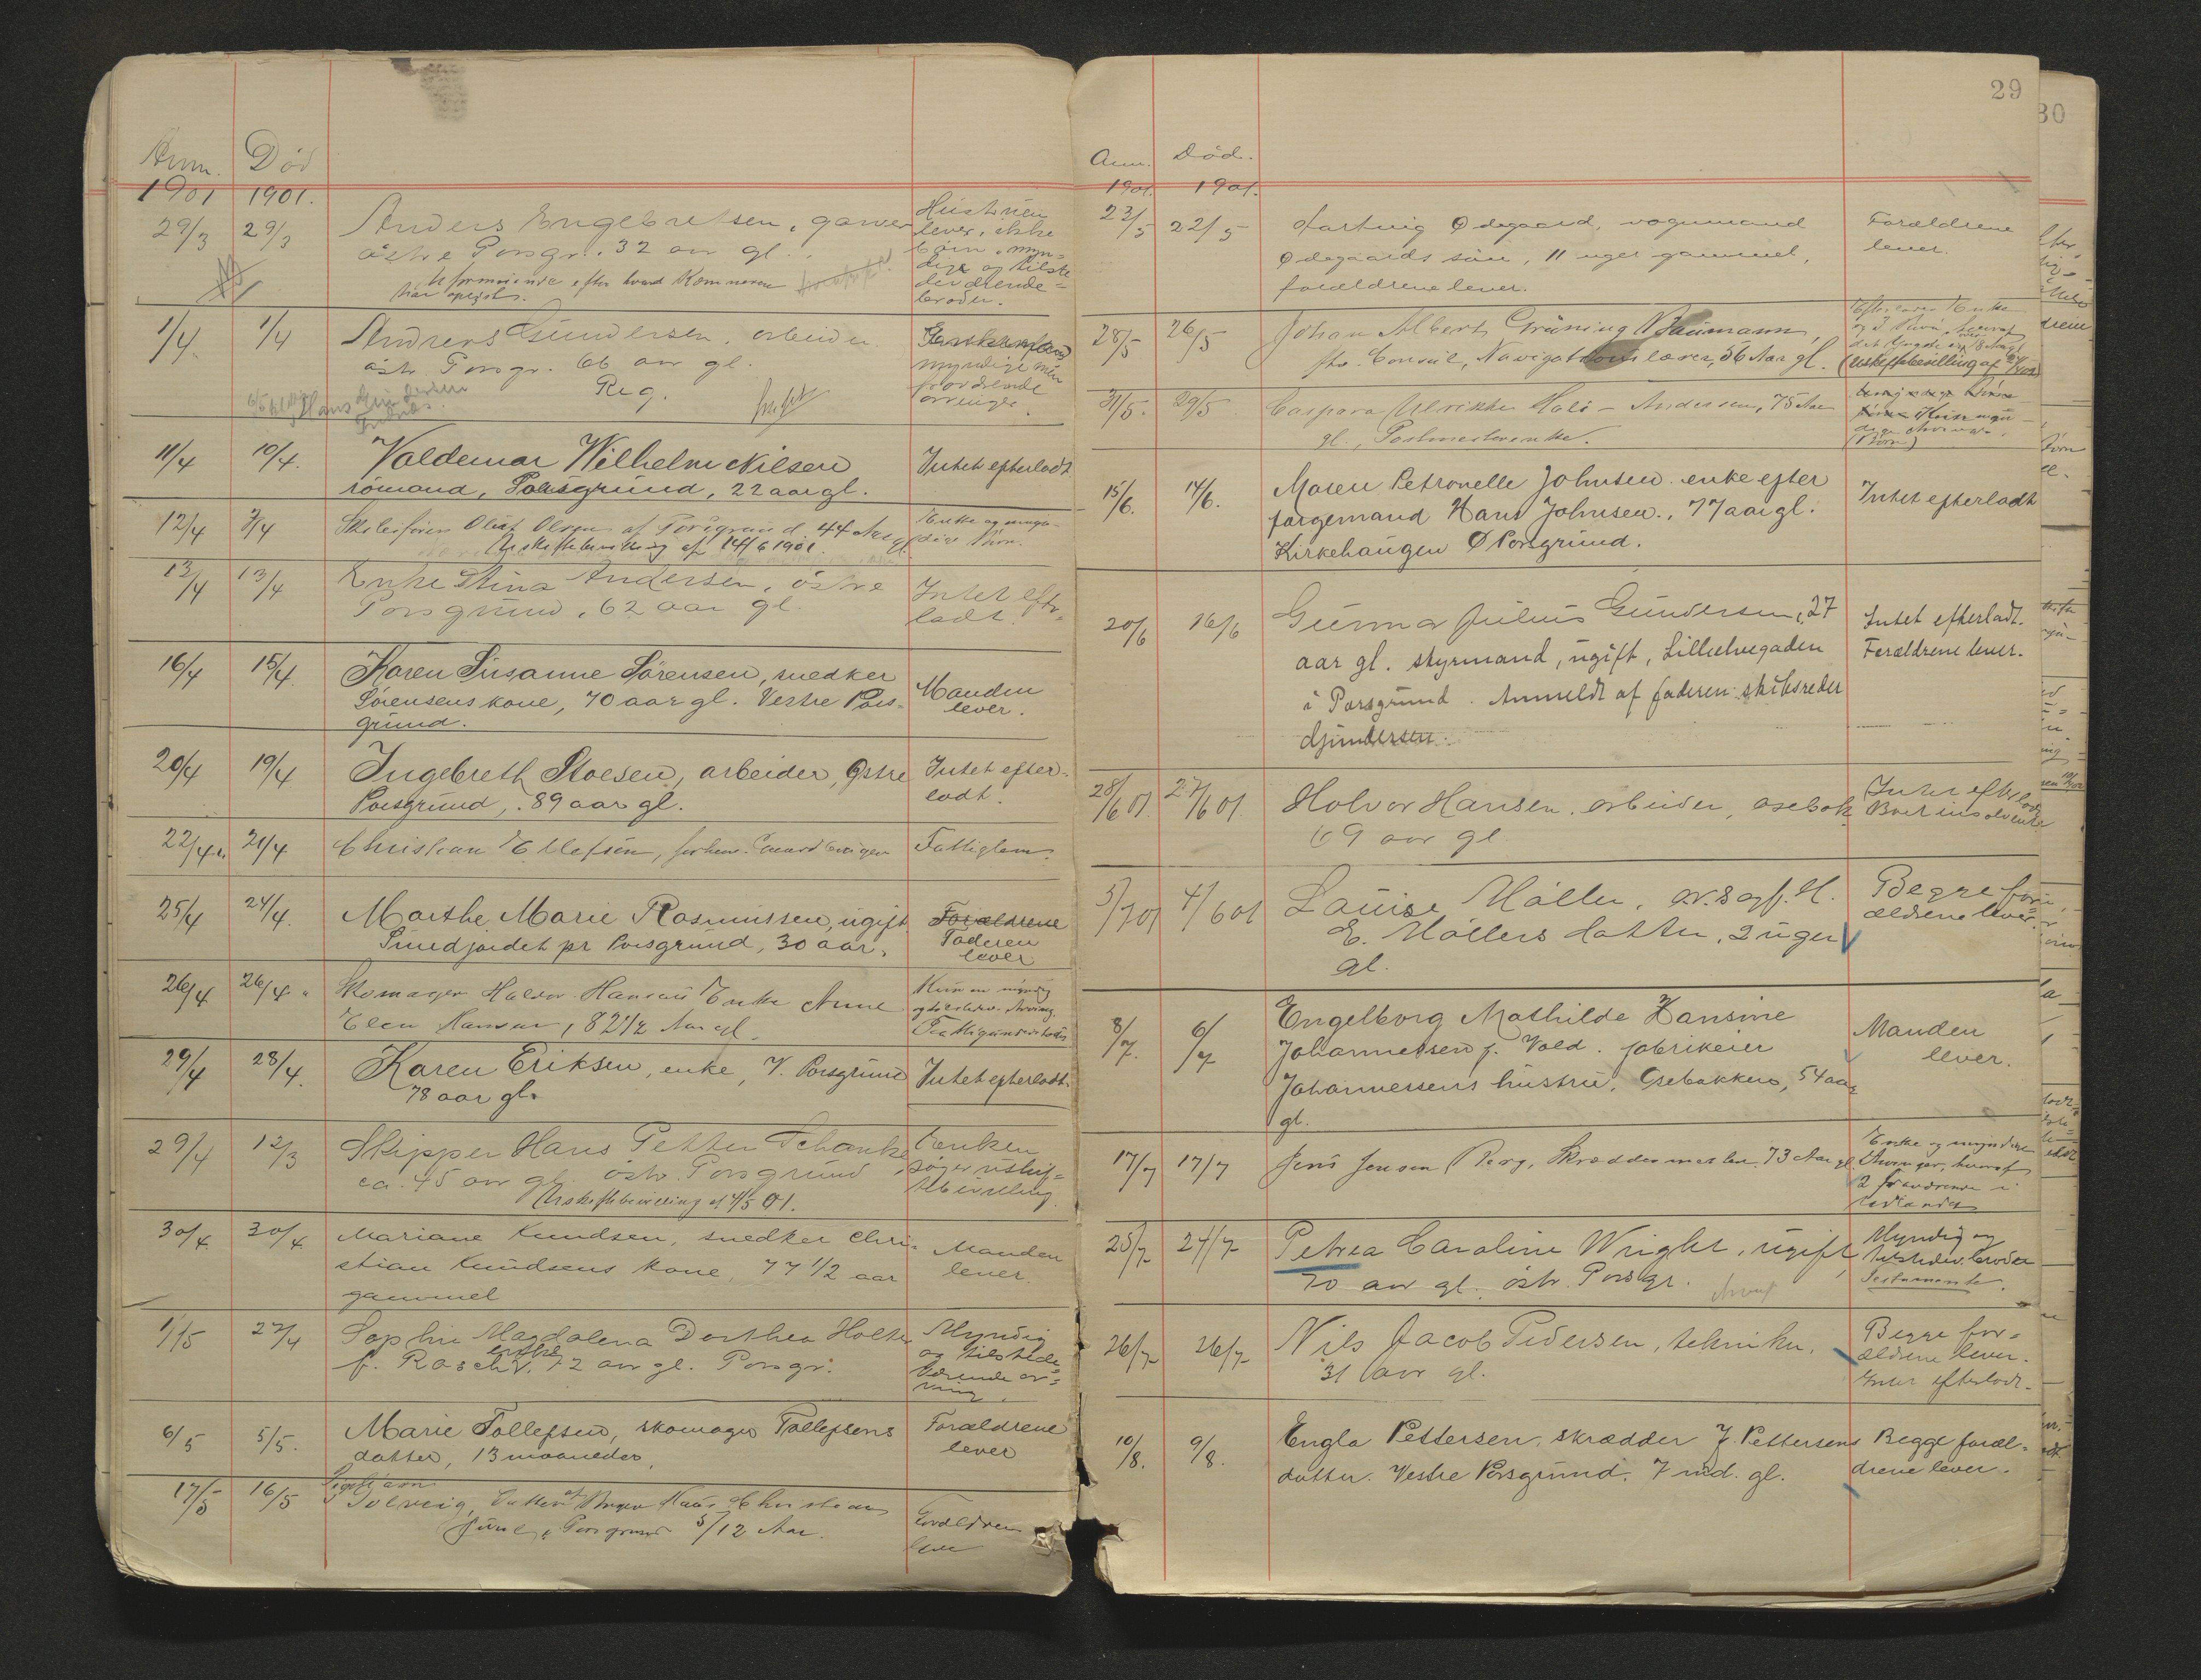 Anm. Død
1901 1901.
29/3 29/3 Anders Engebretsen, garver Hustruen
østre Porsgr. 32 aar gl. lever, ikke
børn, myn-
dige og tilste-
deværende
brødre.
Uformuende efter hvad Kemneren
har oplyst.
1/4. 1/4 Andreas Gundersen, arbeider
østr. Porsgr. 66 aar gl. myndige men
Reg. fraværende
arvinger.
Hans Gundersen
11/4 10/4. Valdemar Wilhelm Nilsen Intet efterladt
sømand, Porsgrund, 22 aar gl.
12/4 3/4 Oluf Olsen af Porsgrund 44 Aar gl. Enke og umyn-
Uskiftebevilling af 14/6 1901. dige Børn.
13/4 13/4 Enke Stina Andersen, østre Intet efter-
Porsgrund, 62 aar gl. ladt.
16/4 15/4. Karen Susanne Sørensen, snedker Manden
Sørensens kone, 70 aar gl. Vestre Pors- lever.
grund.
20/4 19/4 Ingebreth Stoesen, arbeider, Østre Intet efter-
Porsgrund, 89 aar gl. ladt.
22/4 21/4 Christian Ellefsen, forhenv. Fattiglem.
25/4 24/4. Marthe Marie Rasmussen, ugift Forældrene
Smedjordet pr Porsgrund, 30 aar. Faderen
lever
26/4 26/4 Skomager Halvor Hansens Enke Anne Kun en myndig
Elen Hansen, 82 1/2 Aar gl. og tilstedev. Arving.
Fattigunderstøttet
29/4 28/4. Karen Eriksen, enke, V. Porsgrund Intet efterladt.
78 aar gl.
29/4 12/3 Skipper Hans Petter Schanke Enken
ca. 45 aar gl. østr. Porsgrund søger uskif-
Uskiftebevilling af 4/5 01. tebevilling
30/4. 30/4. Mariane Knudsen, snedker Chri- Manden
stian Knudsens kone, 77 1/2 aar lever.
gammel
1/5 27/4 Sophie Magdalena Dorthea Holter Myndig
enke
f. Rasch. 72 aar gl. Porsgr. og tilstede-
værende ar-
ving.
6/5 5/5. Marie Tollefsen, skomager Tollefsens Forældrene
datter, 13 maaneder, lever
17/5 16/5 Solveig, Datter af Hans Christian
Juul, Porsgrund 5/12 Aar. Forældrene
lever
29
30
Anm. Død.
1901. 1901.
23/5 22/5 Hartvig Ødegaard, vognmand Forældrene
Ødegaards søn, 11 uger gammel, lever.
forældrene lever.
28/5 26/5 Johan Albert Grüning Baumann, Efterlader Enke
fhv. Consul, Navigationslærer, 56 Aar gl. (Uskiftebevilling af
31/5. 29/5 Caspara Ulrikke Møli-Andersen, 75 Aar
gl., Postmesterenke. (Børn)
15/6. 14/6. Maren Petronelle Johnsen enke efter Intet efterladt
forgemand Hans Johnsen., 77 aar gl.
Kirkehaugen Ø Porsgrund.
20/6 16/6 Gunnar Julius Gundersen, 27 Intet efterladt.
aar gl. styrmand, ugift, Lilleelvegaden Forældrene lever.
i Porsgrund. Anmeldt af faderen skibsreder
Gundersen.
28/6 01. 27/6 01. Halvor Hansen, arbeider, Osebak. Intet efterladt
69 aar gl. Boet insolvent
5/7 01 4/6 01 Louise Møller, ov.sagf. H. Begge for-
E. Møllers datter, 2 uger ældrene lever.
gl.
8/7. 6/7 Engelborg Mathilde Hansine Manden
Johannessen f. Vold. fabrikeier lever.
Johannessens hustru, Osebakken, 54 aar
gl.
17/7 17/7 Jens Jensen Berg, Skræddermester 73 Aar gl. Enke og myndige
Arvinger, hvoraf
2 fraværende i
Udlandet
25/7 24/7 Petrea Caroline Wright, ugift, Myndig og
70 aar gl. østr. Porsgr. tilstedev. broder
Testamente.
26/7 26/7 Nils Jacob Pedersen, tekniker. Begge for-
31 aar gl. ældrene lever.
Intet efterladt.
10/8. 9/8. Engla Pettersen, skrædder J. Pettersens Begge foræl-
datter. Vestre Porsgrund. 7 md. gl. drene lever.